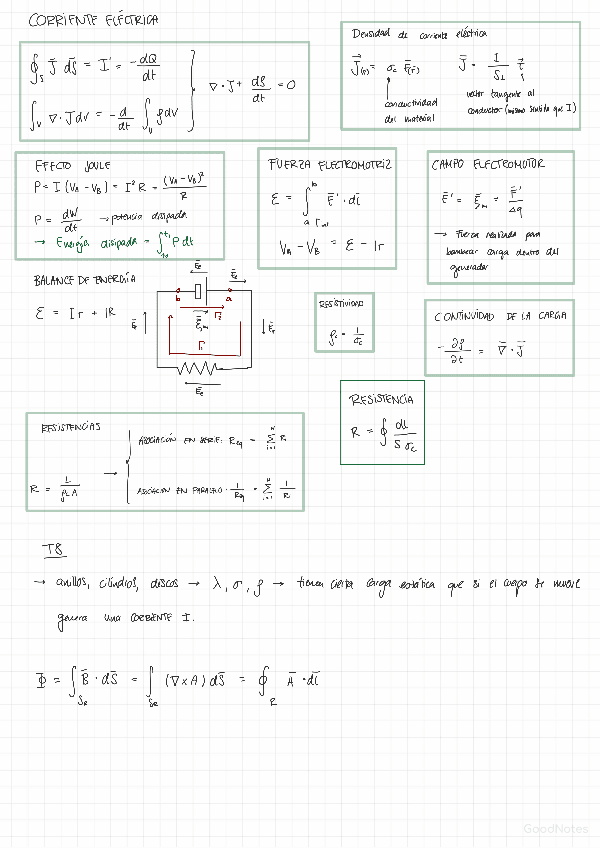 CORRIENTE ELÉCTRICA
∮_S J̄ dS̄ = I' = -dQ/dt
∫_V ∇·J̄ dV = -d/dt ∫_V ρdV
∇·J + dρ/dt = 0
Densidad de corriente eléctrica
J⃗(r) = σc E̅(r̄)
conductividad
del material
J̄ · I/S⊥ t̄
vector tangente al
conductor (mismo sentido que I)
EFECTO JOULE
P = I (VA - VB) = I² R = (VA - VB)²/R
P = dW/dt → potencia disipada
→ Energía disipada = ∫ P dt
FUERZA ELECTROMOTRIZ
ε = ∫ Ē' · dl̄
VA - VB = ε - Ir
CAMPO ELECTROMOTOR
Ē' = Ēm = F̄'/Δq
→ Fuerza realizada para
bombear carga dentro del
generador
BALANCE DE ENERGÍA
ε = Ir + IR
Ēc
Ēc
b
a
Γ2
Ēm
Γ1
Ēc
Ēc
Ēc
RESISTIVIDAD
ρc = 1/σc
CONTINUIDAD DE LA CARGA
-∂ρ/∂t = ∇̄ · J̄
RESISTENCIA
R = ∮ dl/(S σc)
RESISTENCIAS
R = L/(ρc A)
→
ASOCIACIÓN EN SERIE: Req = Σ R
ASOCIACIÓN EN PARALELO · 1/Req = Σ 1/R
T8
→ anillos, cilindros, discos → λ, σ, ρ → tienen cierta carga estática que si el cuerpo se mueve
genera una CORRIENTE I.
Φ̄ = ∫_SR B̄ · dS̄ = ∫_SR (∇ x A) dS̄ = ∮_R Ā · dl̄
GoodNotes